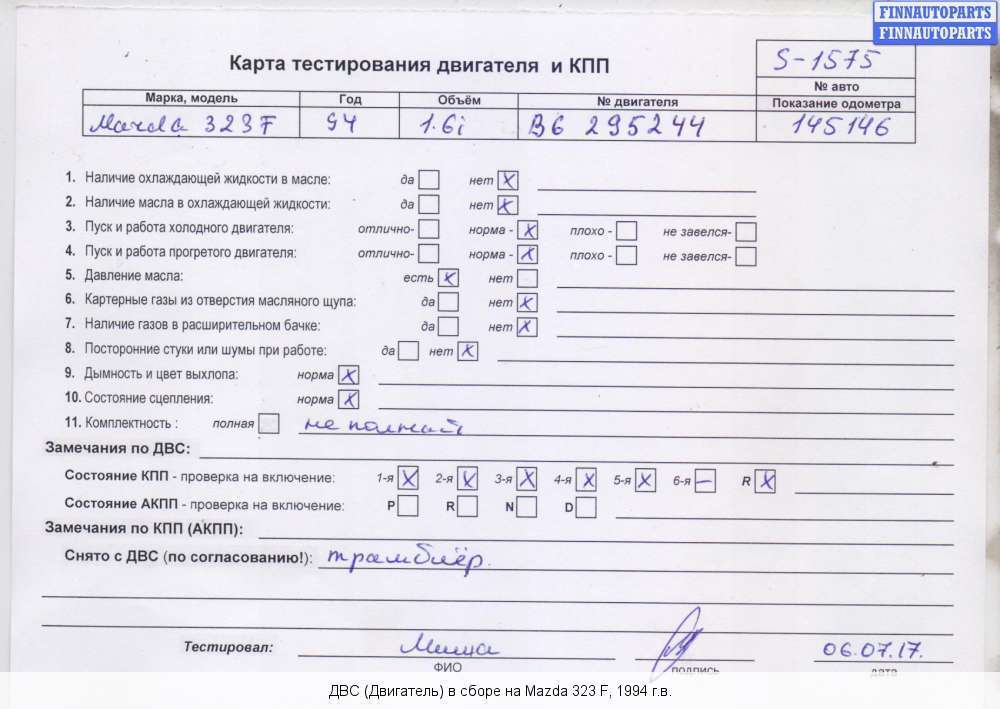 FINNAUTOPARTS
FINNAUTOPARTS
Карта тестирования двигателя и КПП
S-1575
№ авто
Марка, модель Год Объём № двигателя Показание одометра
Mazda 323F 94 1.6i B6 295244 145146
1. Наличие охлаждающей жидкости в масле: да нет X
2. Наличие масла в охлаждающей жидкости: да нет X
3. Пуск и работа холодного двигателя: отлично- норма - X плохо - не завелся-
4. Пуск и работа прогретого двигателя: отлично- норма - X плохо - не завелся-
5. Давление масла: есть X нет
6. Картерные газы из отверстия масляного щупа: да нет X
7. Наличие газов в расширительном бачке: да нет X
8. Посторонние стуки или шумы при работе: да нет X
9. Дымность и цвет выхлопа: норма X
10. Состояние сцепления: норма X
11. Комплектность : полная не полный
Замечания по ДВС:
Состояние КПП - проверка на включение: 1-я X 2-я X 3-я X 4-я X 5-я X 6-я – R X
Состояние АКПП - проверка на включение: P R N D
Замечания по КПП (АКПП):
Снято с ДВС (по согласованию!): трамблёр.
Тестировал: Миша 06.07.17.
ФИО подпись дата
ДВС (Двигатель) в сборе на Mazda 323 F, 1994 г.в.